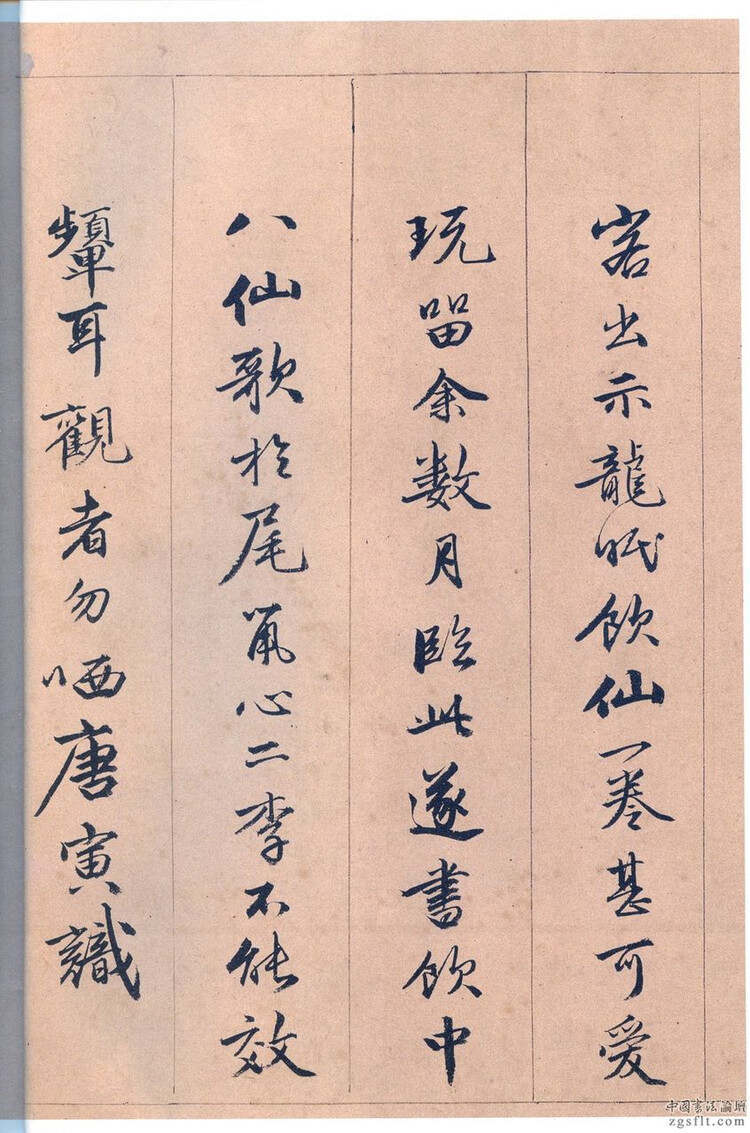 客出示龍眠飲仙一卷甚可愛
玩留余数月臨此遂書飲中
八仙歌於尾鼠心二李不能效
顰耳觀者勿哂唐寅識
中國書法論壇
zgsflt.com